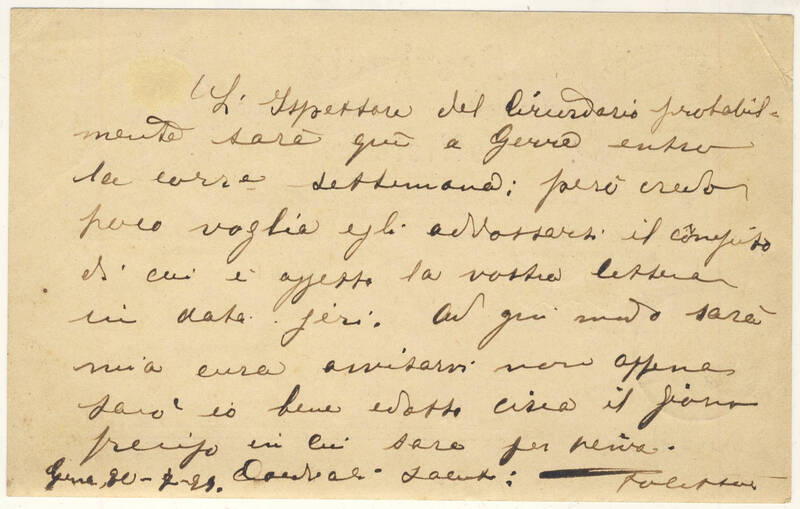 L'Ispettore del Circondario probabil-
mente sarà quì a Gerre entro
la corre settemana; però credo
poco voglia egli addossarsi il compito
di cui è oggetto la vostra lettera
in data jeri. Ad gni modo sarà
mia cura avvisarvi non appena
sarò io bene edotto circa il giorno
preciso in cui sarà per
Cordiali saluti: